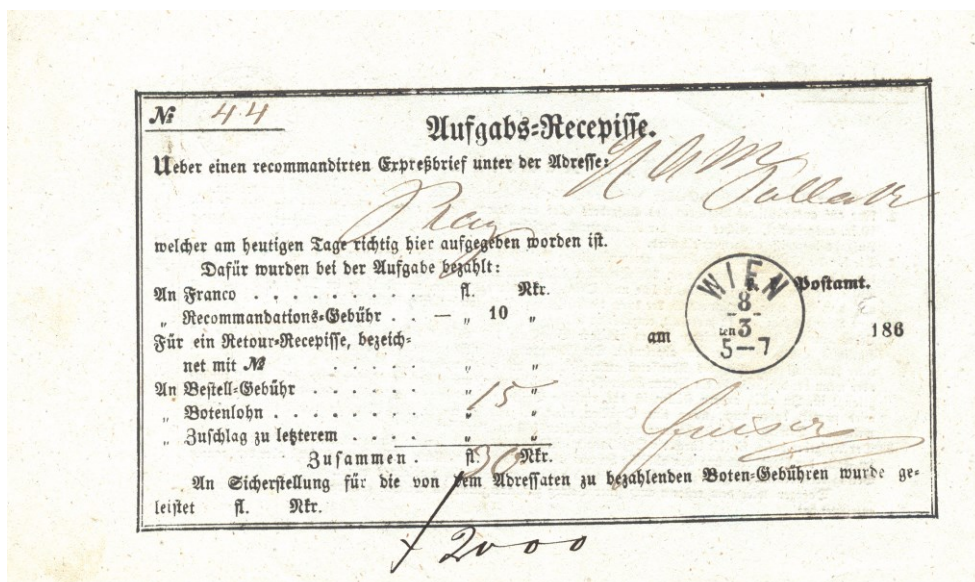 № 44
Aufgabs-Recepisse.
Ueber einen recommandirten Expreßbrief unter der Adresse:
Pollak
Prag
welcher am heutigen Tage richtig hier aufgegeben worden ist.
Dafür wurden bei der Aufgabe bezahlt:
An Franco . . . . . . . . . fl. Nkr.
„ Recommandations-Gebühr . . — „ 10 „
Für ein Retour-Recepisse, bezeich-
net mit № . . . . . „ „
An Bestell-Gebühr . . . . . . . „ 15 „
„ Botenlohn . . . . . . . . „ „
„ Zuschlag zu letzterem . . . . „ „
Zusammen . fl. 30 Nkr.
WIEN
8
3
5—7
Postamt.
am
186
An Sicherstellung für die von dem Adressaten zu bezahlenden Boten-Gebühren wurde ge-
leistet fl. Nkr.
2000